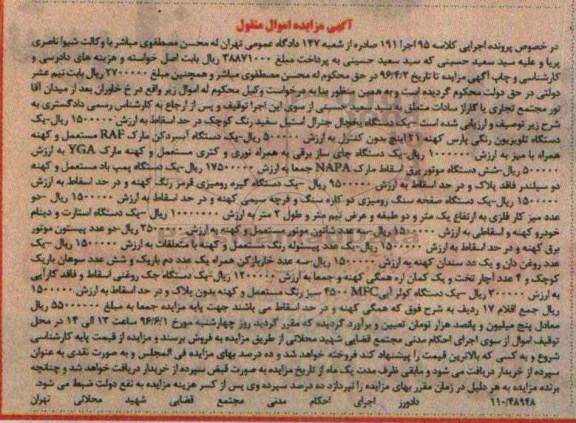 آگهی مزایده اموال منقول
در خصوص پرونده اجرایی کلاسه ۹۵ اجرا ۱۹۱ صادره از شعبه ۱۴۷ دادگاه عمومی تهران له محسن مصطفوی مباشر با وکالت شیوا ناصری
پریا و علیه سید سعید حسینی که سید سعید حسینی به پرداخت مبلغ ۳۸۸۷۱۰۰۰ ریال بابت اصل خواسته و هزینه های دادرسی و
کارشناسی و چاپ آگهی مزایده تا تاریخ ۹۶/۴/۲ در حق محکوم له محسن مصطفوی مباشر و همچنین مبلغ ۲۷۰۰۰۰۰ ریال بابت نیم عشر
دولتی در حق دولت محکوم گردیده است و به همین منظور بنا به درخواست وکیل محکوم له اموال زیر واقع در خ خاوران بعد از میدان آقا
نور مجتمع تجاری یا گاراژ سادات متعلق به سید سعید حسینی از سوی این اجرا توقیف و پس از ارجاع به کارشناس رسمی دادگستری به
شرح زیر توصیف و ارزیابی شده است -یک دستگاه یخچال جنرال استیل سفید رنگ کوچک در حد اسقاط به ارزش ۱۵۰۰۰۰۰ ریال-یک
دستگاه تلویزیون رنگی پارس کهنه ۲۱ اینچ بدون کنترل به ارزش ۵۰۰۰۰۰ ریال-یک دستگاه آبسردکن مارک RAF مستعمل و کهنه
همراه با میز به ارزش ۱۰۰۰۰۰۰ ریال-یک دستگاه چای ساز برقی به همراه توری و کتری مستعمل و کهنه مارک YGA به ارزش
۵۰۰۰۰۰ ریال-شش دستگاه موتور برق اسقاط مارک NAPA جمعا به ارزش ۱۷۵۰۰۰۰۰ ریال-یک دستگاه پمپ باد مستعمل و کهنه
دو سیلندر فاقد پلاک و در حد اسقاط به ارزش ۹۵۰۰۰۰۰ ریال -یک دستگاه گیره رومیزی قرمز رنگ کهنه و در حد اسقاط به ارزش
۱۵۰۰۰۰۰ ریال-یک دستگاه صفحه سنگ رومیزی دو کاره سنگ و فرچه سیمی کهنه و در حد اسقاط به ارزش ۱۵۰۰۰۰۰ ریال -دو
عدد میز کار فلزی به ارتفاع یک متر و دو طبقه و عرض نیم متر و طول ۲ متر به ارزش ۱۰۰۰۰۰۰۰ ریال -یک دستگاه استارت و دینام
خودرو کهنه و اسقاطی به ارزش ۱۵۰۰۰۰۰ ریال-سه عدد شاتون موتور مستعمل و کهنه به ارزش ۲۵۰۰۰۰۰ ریال-دو عدد پیستون موتور
برق کهنه و در حد اسقاط به ارزش ۱۵۰۰۰۰۰ ریال-یک عدد پیستوله رنگ مستعمل و کهنه با متعلقات به ارزش ۱۵۰۰۰۰۰ ریال -یک
عدد روغن دان و یک دد سندان کهنه به ارزش ۱۵۰۰۰۰۰ ریال-سه عدد خاربازکن همراه یک عدد دم باریک و شش عدد سوهان باریک
کوچک و ۴ عدد آچار تخت و یک کمان اره همگی کهنه و جمعا به ارزش ۱۲۰۰۰۰۰ ریال-یک دستگاه جک روغنی اسقاط و فاقد کارآیی
به ارزش ۳۰۰۰۰۰ ریال -یک دستگاه کولر آبی MFC ۴۵۰۰ سبز رنگ مستعمل و کهنه بدون پلاک و در حد اسقاط به ارزش ۱۵۰۰۰۰۰
ریال جمع اقلام ۱۷ ردیف به شرح فوق که همگی کهنه و در حد اسقاط می باشند جهت پایه مزایده جمعا به مبلغ ۵۵۰۰۰۰۰۰ ریال
معادل پنج میلیون و پانصد هزار تومان تعیین و برآورد گردیده که مقرر گردید روز چهارشنبه مورخ ۹۶/۶/۱ ساعت ۱۳ الی ۱۴ در محل
توقیف اموال از سوی اجرای احکام مدنی مجتمع قضایی شهید محلاتی از طریق مزایده به فروش برسند و مزایده از قیمت پایه کارشناسی
شروع و به کسی که بالاترین قیمت را پیشنهاد کند فروخته خواهد شد و ده درصد بهای مزایده فی المجلس و به صورت نقدی به عنوان
سپرده از خریدار دریافت می شود و مابقی ظرف مدت یک ماه از تاریخ مزایده به صورت قبض سپرده از خریدار دریافت خواهد شد و چنانچه
برنده مزایده به هر دلیل در زمان مقرر بهای مزایده را نپردازد ده درصد سپرده وی پس از کسر هزینه مزایده به نفع دولت ضبط می شود.
۱۱۰/۴۸۹۴۸ دادورز اجرای احکام مدنی مجتمع قضایی شهید محلاتی تهران